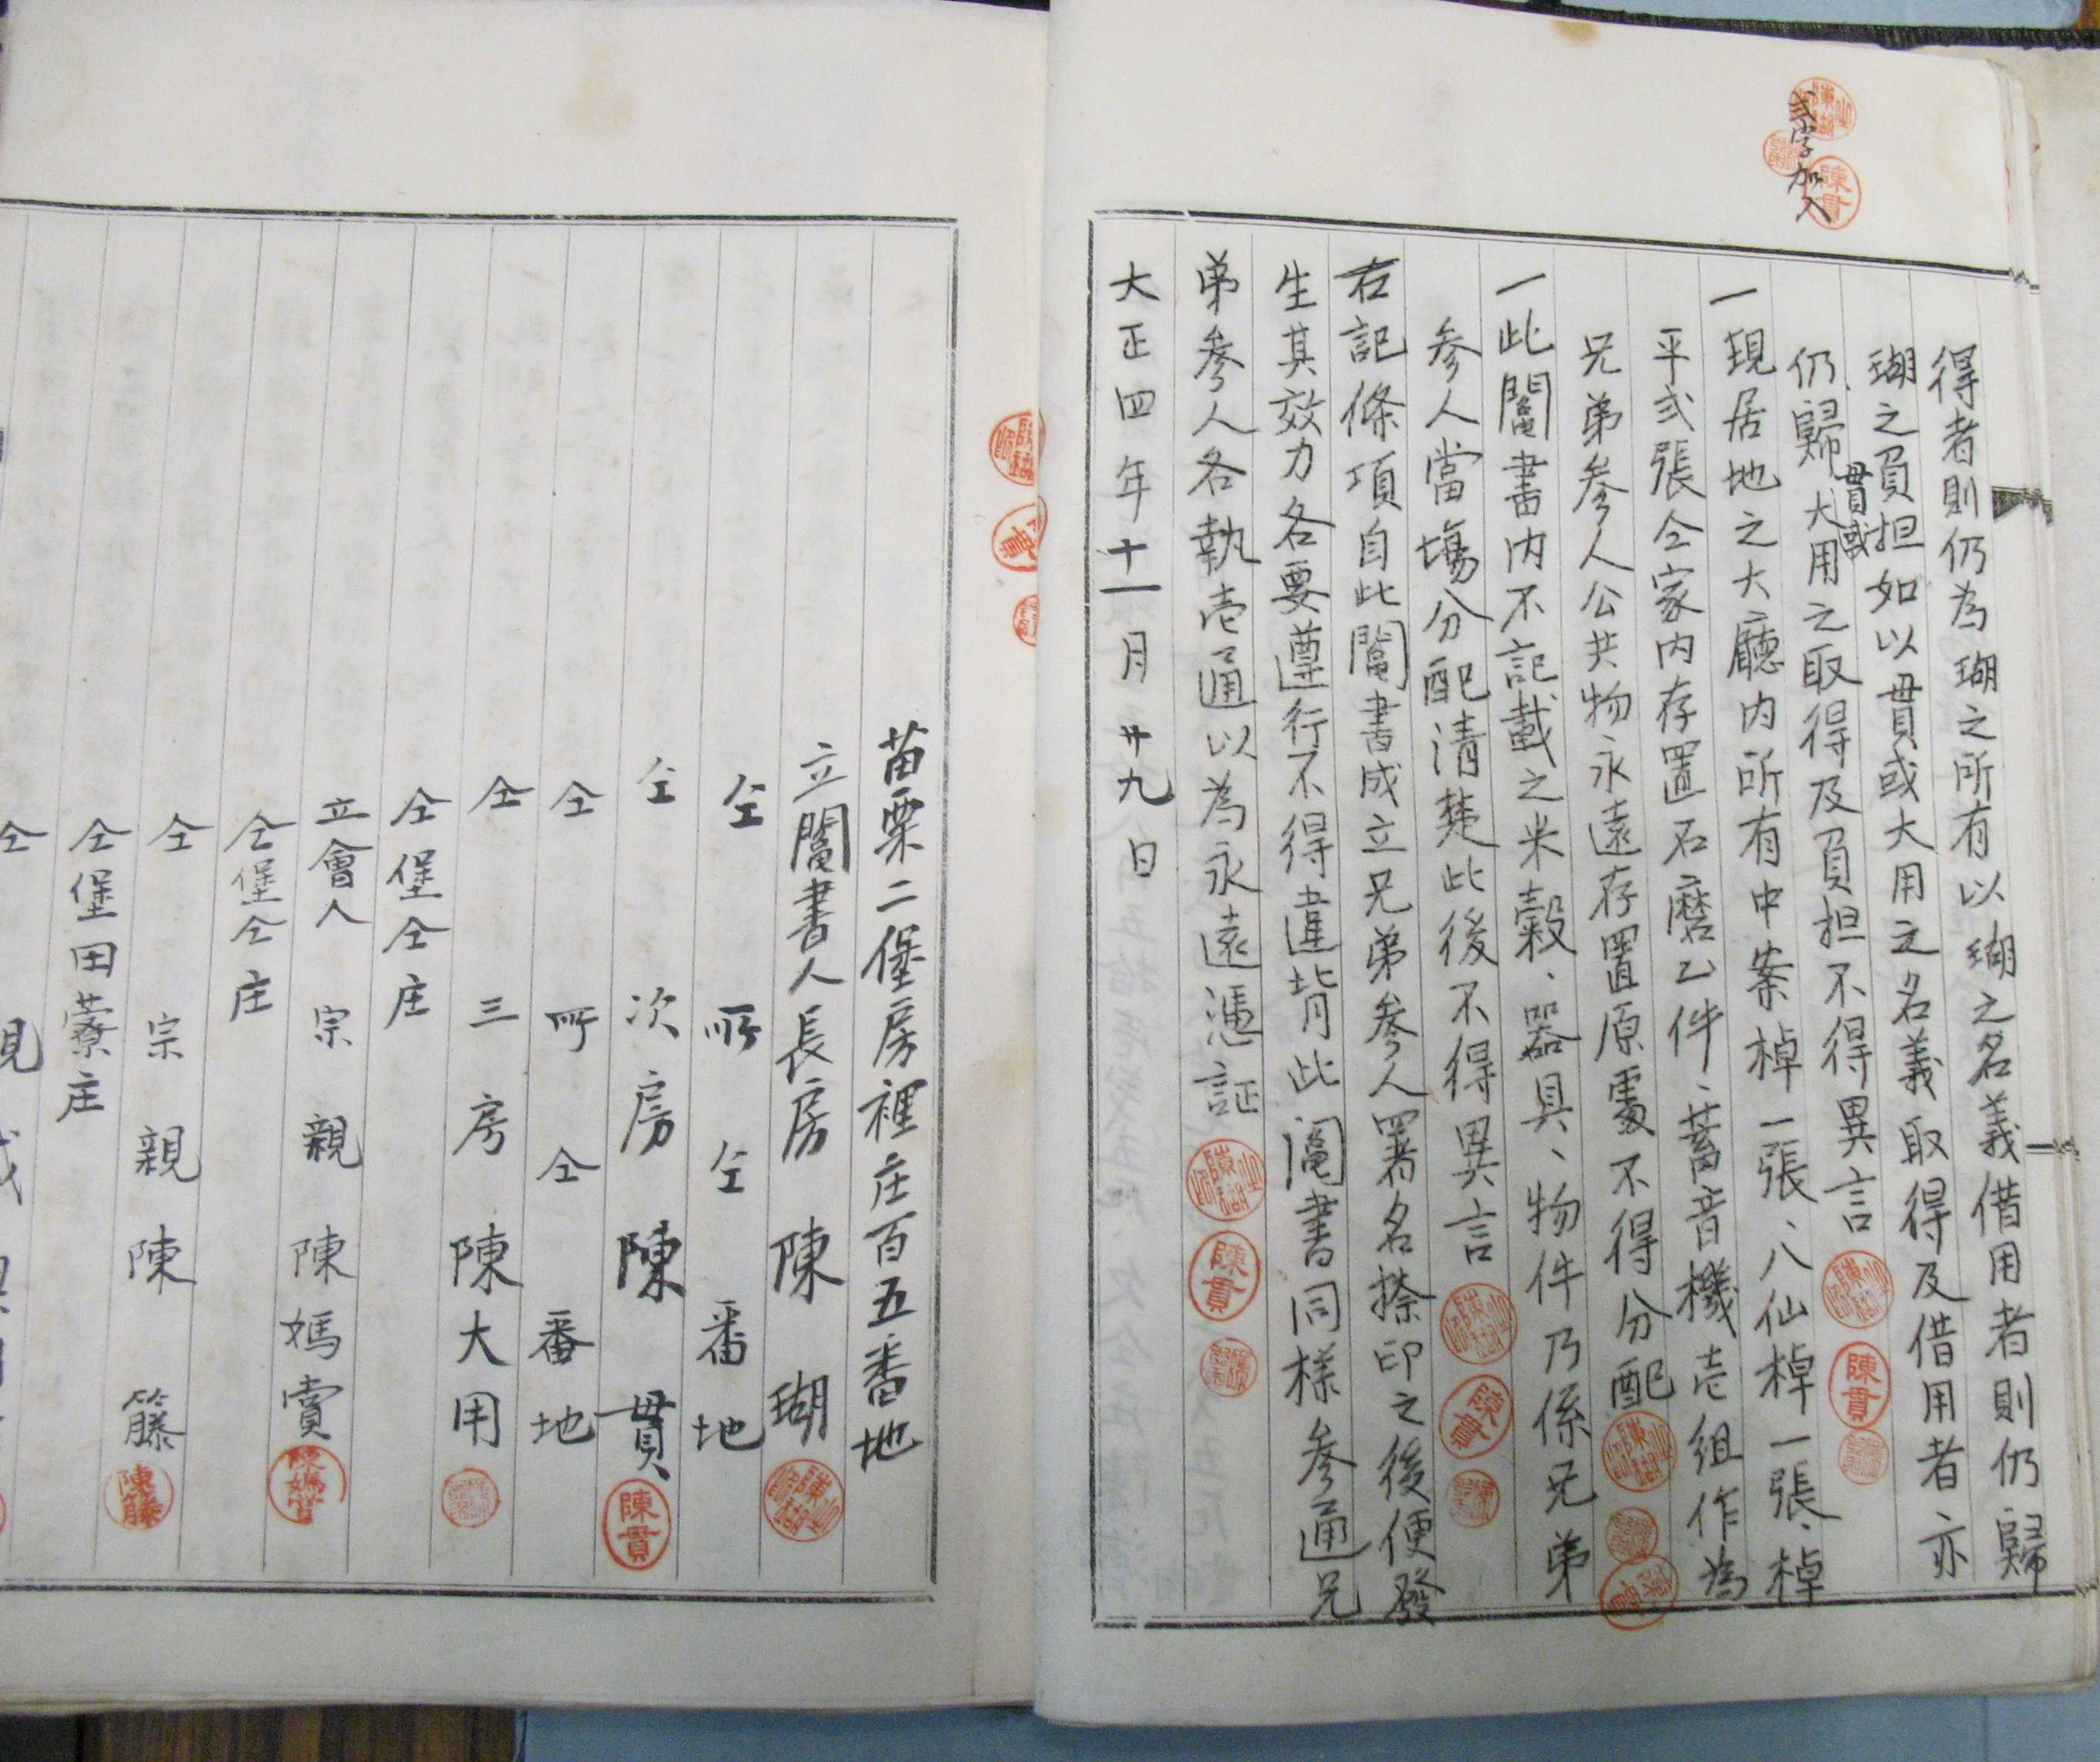 弍字加入
得者則仍為瑚之所有以瑚之名義借用者則仍歸
瑚之負担如以貫或大用之名義取得及借用者亦
貫或
仍歸大用之取得及負担不得異言
一現居地之大廳内所有中案棹一張、八仙棹一張、棹
平弍張仝家内存置石磨乙件、蓄音機壱組作為
兄弟參人公共物永遠存置原處不得分配
一此鬮書内不記載之米穀、器具、物件乃係兄弟
參人當塲分配清楚此後不得異言
右記條項自此鬮書成立兄弟參人署名捺印之後便發
生其效力各要遵行不得違背此鬮書同樣參通兄
弟參人各執壱通以為永遠憑証
大正四年十一月廿九日
陳貫
苗栗二堡房裡庄百五番地
立鬮書人長房 陳瑚
仝所仝番地
仝 次房 陳貫
陳貫
仝所仝番地
仝 三房 陳大用
仝堡仝庄
立會人 宗親 陳媽賣
仝堡仝庄
仝 宗親 陳籐
陳籐
仝堡田藔庄
仝